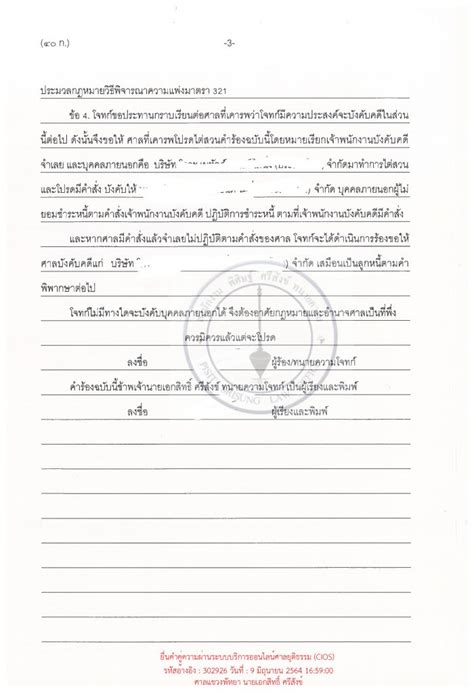 (๔๐ ก.)
-3-
ประมวลกฎหมายวิธีพิจารณาความแพ่งมาตรา 321
ข้อ 4. โจทก์ขอประทานกราบเรียนต่อศาลที่เคารพว่าโจทก์มีความประสงค์จะบังคับคดีในส่วน
นี้ต่อไป ดังนั้นจึงขอให้ ศาลที่เคารพโปรดไต่สวนคำร้องฉบับนี้โดยหมายเรียกเจ้าพนักงานบังคับคดี
จำเลย และบุคคลภายนอกคือ บริษัท จำกัดมาทำการไต่สวน
และโปรดมีคำสั่ง บังคับให้ ) จำกัด บุคคลภายนอกผู้ไม่
ยอมชำระหนี้ตามคำสั่งเจ้าพนักงานบังคับคดี ปฏิบัติการชำระหนี้ ตามที่เจ้าพนักงานบังคับคดีมีคำสั่ง
และหากศาลมีคำสั่งแล้วจำเลยไม่ปฏิบัติตามคำสั่งของศาล โจทก์จะได้ดำเนินการร้องขอให้
ศาลบังคับคดีแก่ บริษัท ) จำกัด เสมือนเป็นลูกหนี้ตามคำ
พิพากษาต่อไป
โจทก์ไม่มีทางใดจะบังคับบุคคลภายนอกได้ จึงต้องอาศัยกฎหมายและอำนาจศาลเป็นที่พึ่ง
ควรมิควรแล้วแต่จะโปรด
ลงชื่อ ผู้ร้อง/ทนายความโจทก์
คำร้องฉบับนี้ข้าพเจ้านายเอกสิทธิ์ ศรีสังข์ ทนายความโจทก์ เป็นผู้เรียงและพิมพ์
ลงชื่อ ผู้เรียงและพิมพ์
ยื่นคำคู่ความผ่านระบบบริการออนไลน์ศาลยุติธรรม (CIOS)
รหัสอ้างอิง : 302926 วันที่ : 9 มิถุนายน 2564 16:59:00
ศาลแขวงพัทยา นายเอกสิทธิ์ ศรีสังข์